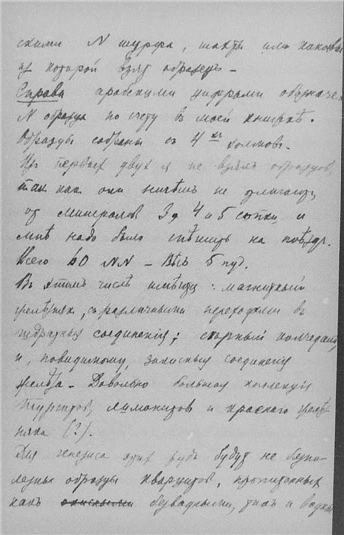 скими N шурфа, шахты или канавы
из которой взят образец. –
Справа арабскими цифрами обозначен
N образца по счету в моей книжке.
Образцы собраны с 4х холмов.
Из первых двух я не взял образцов,
так как они ничем не отличались
от минералов 3, 4 и 5 сопки, и
мне надо было спешить на поезд.
Всего 60 NN – Вѣс 5 пуд.
В этом числе имеются: магнитный
железняк, с различными переходами в
гидратные соединения; серный колчедан,
и, повидимому, закисные соединения
железа. Довольно большая коллекция
лимонитов и красного желез-
няка (?).
Для генезиса этих руд будут не беспо-
лезные образцы кварцитов, пропитанных
как бурыми, так и